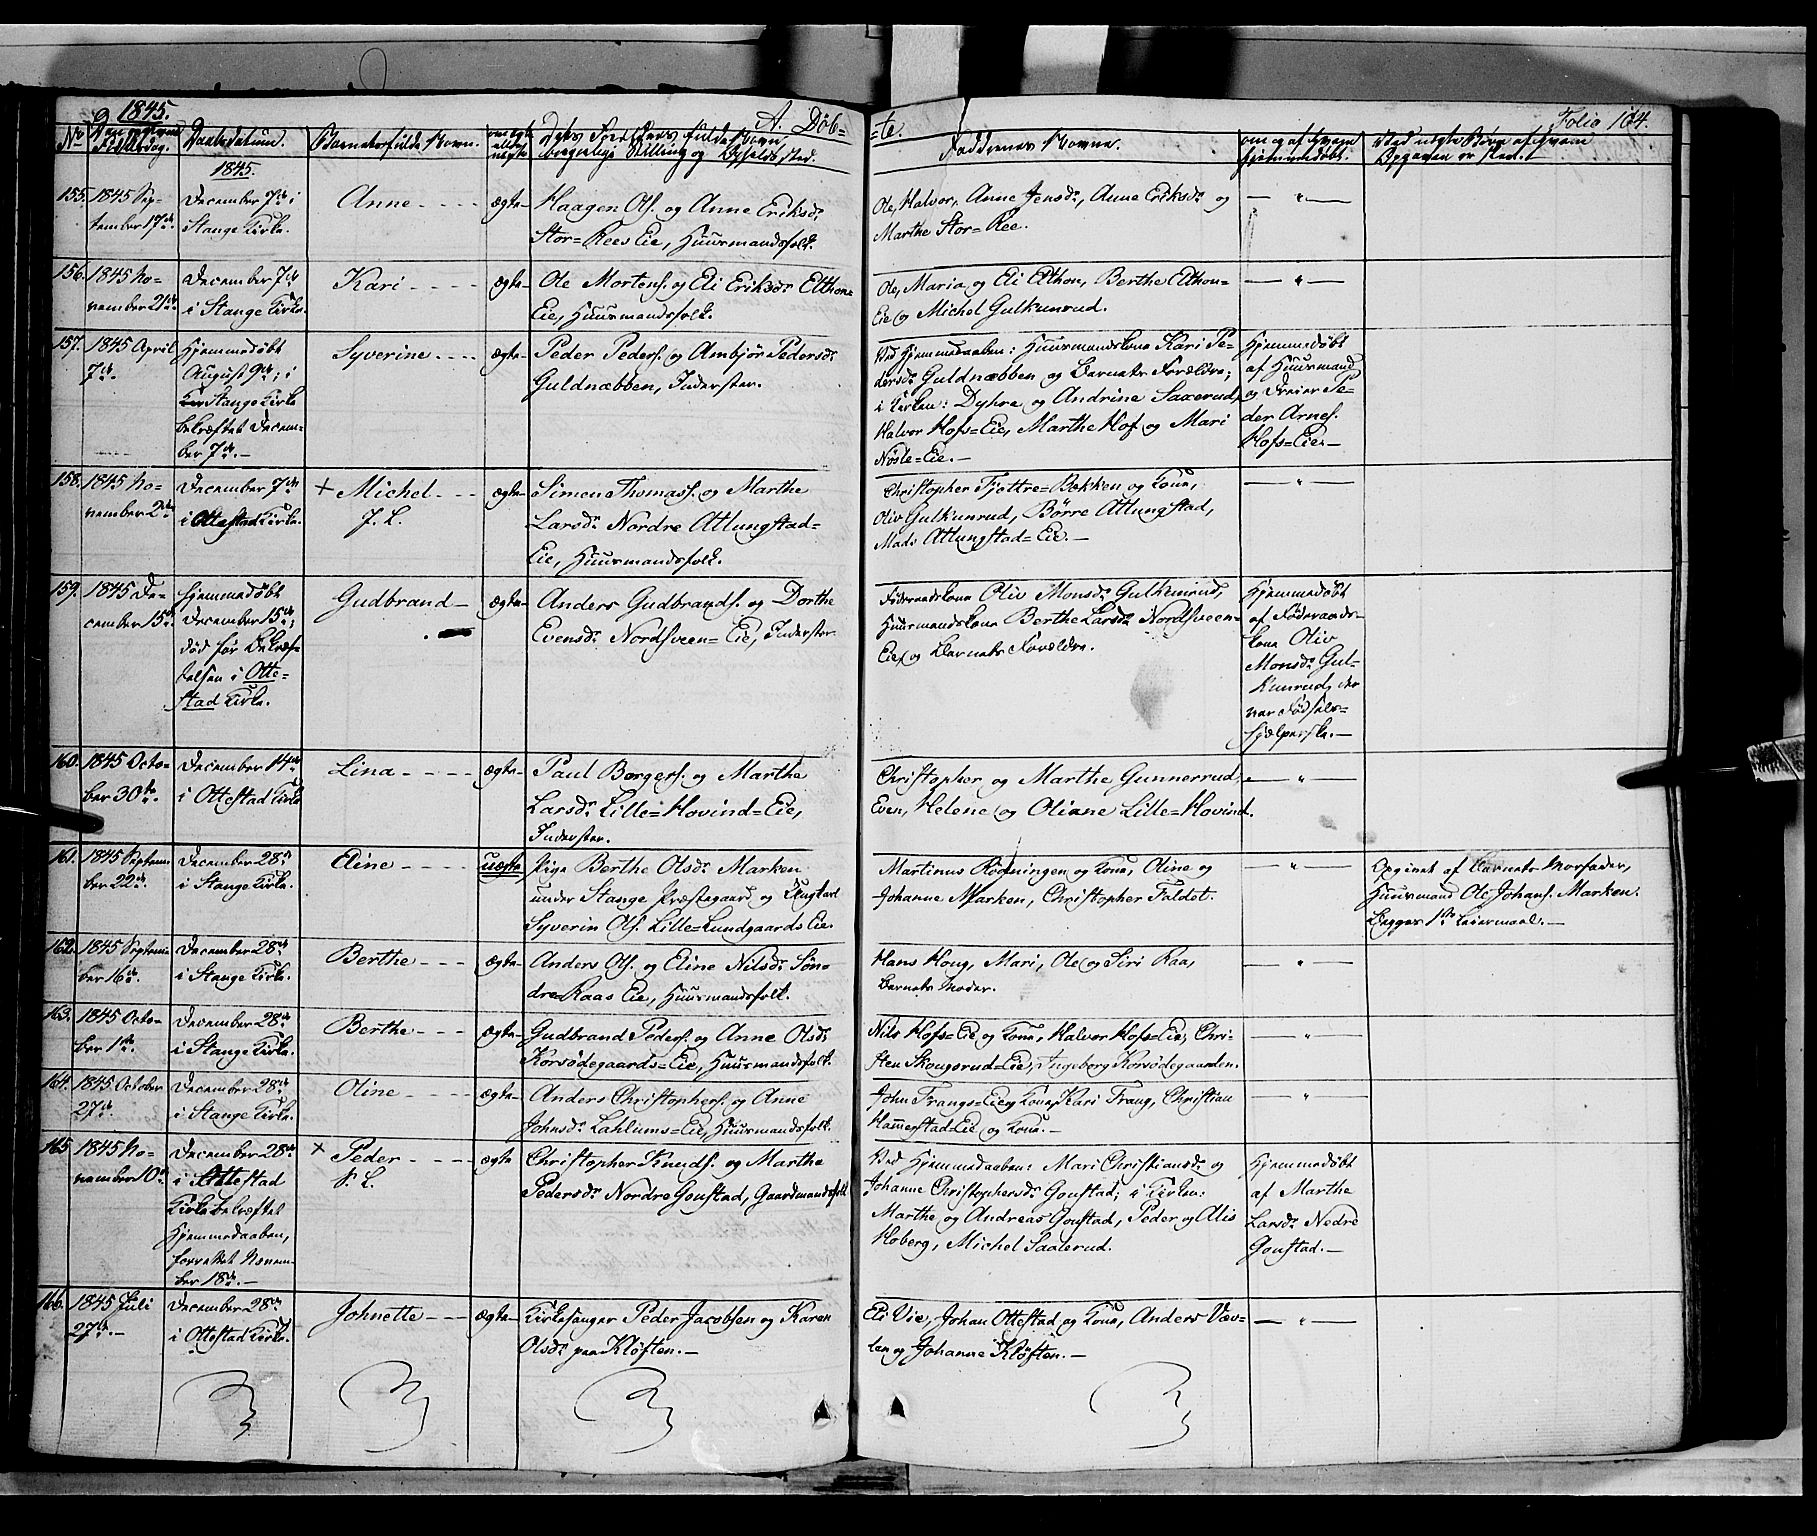 1845.
A. Döb=
=te.
Folio 104.
No
Den
Fødselsdag.
Daabsdatum.
Barnets fulde Navn.
om ægte
eller
uægte
Dets Forældres fulde Navn
borgerlige Stilling og Opholdssted.
Faddernes Navne.
om og af hvem
hjemmedöbt.
Ved uægte Börn af hvem
Opgaven er skeet.
1845.
155.
1845 Sep-
tember 17de
December 7de i
Stange Kirke.
Anne
ægte
Haagen Ols. og Anne Eriksdr
Stor=Rees Eie, Huusmandsfolk.
Ole, Halvor, Anne Jensdr, Anne Eriksdr og
Marthe Stor=Ree.
— " —
156.
1845 No-
vember 21de
December 7de
i Stange Kirke.
Kari
ægte
Ole Mortens. og Eli Eriksdr Elthon=
Eie, Huusmandsfolk.
Ole, Maria og Eli Elthon, Berthe Elthon=
Eie og Michel Gulkunrud.
— " —
157.
1845 April
7de
Hjemmedöbt
August 9de; i
Stange Kirke
bekræftet Decem-
ber 7de.—
Syverine
ægte
Peder Peders. og Ambjör Pedersdr
Guldnæbben, Inderster.
Ved Hjemmedaaben: Huusmandskone Kari Pe-
dersdr Guldnæbben og Barnets Forældre;
i Kirken: Dyhre og Andrine Saxerud,
Halvor Hofs=Eie, Marthe Hof og Mari
Nösle=Eie.—
Hjemmedöbt
af Huusmand
og Dreier Pe-
der Arnes.
Hofs=Eie.—
158.
1845 No-
vember 2den
December 7de
i Ottestad Kirke.
+ Michel
J. L.
ægte
Simen Thomass. og Marthe
Larsdr Nordre Atlungstad=
Eie, Huusmandsfolk.
Christopher Tjettre=Bækken og Kone,
Oliv Gulkunrud, Börre Atlungstad,
Mads Atlungstad=Eie.—
— " —
159.
1845 De-
cember 15de
Hjemmedöbt
December 15de;
död för Bekræf-
telsen i Otte-
stad Kirke.
Gudbrand
ægte
Anders Gudbrands. og Dorthe
Evensdr Nordsveen=Eie, Inderster.
Föderaadskone Oliv Monsdr Gulkunrud,
Huusmandskone Berthe Larsdr Nordsveen=
Eie, og Barnets Forældre.
Hjemmedöbt
af Föderaads-
kone Oliv
Monsdr Gul-
kunrud, der
var Födsels-
hjælperske.—
160.
1845 Octo-
ber 30te
December 14de
i Ottestad Kirke
Lina
ægte
Paul Borgers. og Marthe
Larsdr Lille=Hovind=Eie,
Inderster.
Christopher og Marthe Gunnerud,
Even, Helene og Oliane Lille=Hovind.
— " —
161.
1845 Septem-
ber 22de
December 28de
i Stange Kirke.
Eline
uægte
Pige Berthe Olsdr Marken
under Stange Præstegaard og Ungkarl
Syverin Ols. Lille=Lundgaards Eie.
Martinus Rödningen og Kone, Oline og
Johanne Marken, Christopher Faldet.
— " —
Opgivet af Barnets Morfader,
Huusmand Ole Johans. Marken.
Begges 1ste Leiermaal.—
162.
1845 Septem-
ber 16de
December 28de
i Stange Kirke.
Berthe
ægte
Anders Ols. og Eline Nilsdr Sön-
dre Raas Eie, Huusmandsfolk.
Hans Houg, Mari, Ole og Siri Raa,
Barnets Moder.
— " —
163.
1845 Octo-
ber 1ste
December 28de
i Stange Kirke.
Berthe
ægte
Gudbrand Peders. og Anne Olsdr
Korsödegaards=Eie, Huusmandsfolk.
Nils Hofs=Eie og Kone, Halvor Hofs=Eie, Chri-
sten Skougsrud=Eie, Ingeborg Korsödegaarden.
— " —
164.
1845 October
27de
December 28de
i Stange Kirke.
Oline
ægte
Anders Christophers. og Anne
Johnsdr Lahlums=Eie, Huusmandsfolk.
John Frangs=Eie og Kone, Kari Frang, Christian
Hammerstad=Eie og Kone.—
— " —
165
1845 No-
vember 10de
December 28de
i Ottestad
Kirke bekræftet
Hjemmedaaben,
forrettet Novem-
ber 18de.—
+ Peder
P. L.
ægte
Christopher Knuds. og Marthe
Pedersdr Nordre Gonstad, Gaardmandsfolk
Ved Hjemmedaaben: Mari Christiansdr og
Johanne Christophersdr Gonstad; i Kirken:
Marthe og Andreas Gonstad, Peder og Alis
Hoberg, Michel Saalerud.
Hjemmedöbt
af Marthe
Larsdr Nedre
Gonstad.—
166.
1845 Juli
27de.—
December 28de
i Ottestad Kirke.
Johnette
ægte
Kirkesanger Peder Jacobsen og Karen
Olsdr paa Klöften.—
Eli Vie, Johan Ottestad og Kone, Anders Væv-
len og Johanne Klöften.—
— " —